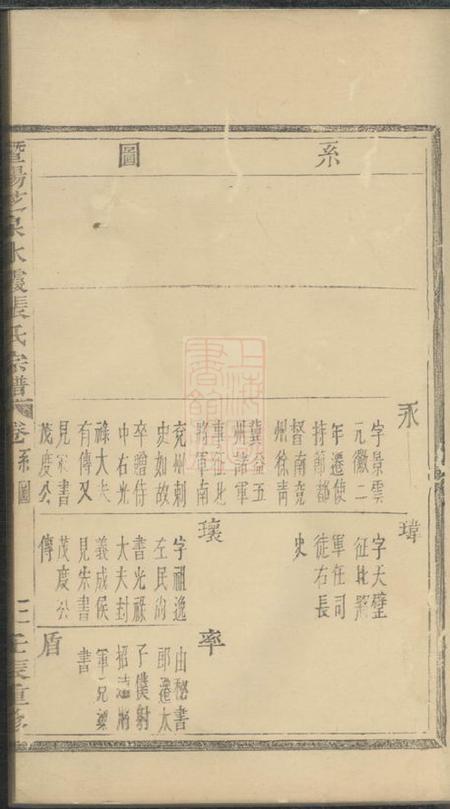 系圖
永
字景雲
元徽二
年遷使
持節都
督南兗
州徐青
冀益五
州諸軍
事征北
將軍南
兗州刺
史如故
卒贈侍
中右光
祿大夫
有傳又
見宋書
茂度公
瑋
字天璧
征北將
軍在司
徒右長
史
瓌
字祖逸
左民尚
書光祿
大夫封
義成侯
見宋書
茂度公
傳
率
由秘書
郎遷太
子僕射
招遠將
軍見梁
書
盾
暨陽芝泉水霞張氏宗譜
卷
系圖
三
壬辰重修
上海
圖書館藏